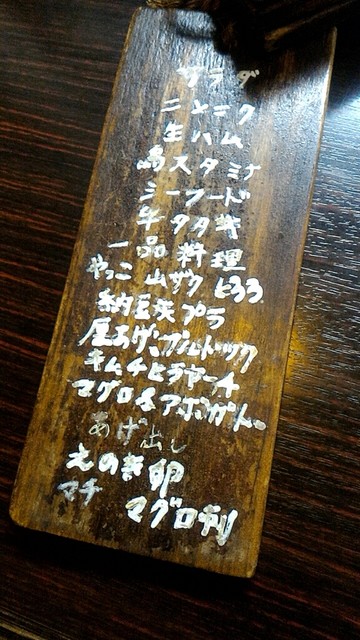 サラダ
ニンニク
生ハム
嶋スタミナ
シーフード
牛タタキ
一品料理
やっこ 山ザク とろろ
納豆天プラ
厚あげ フルドック
キムチヒラヤーチ
マグロ&アボガド
あげ出し
えのき卵
マチ マグロ